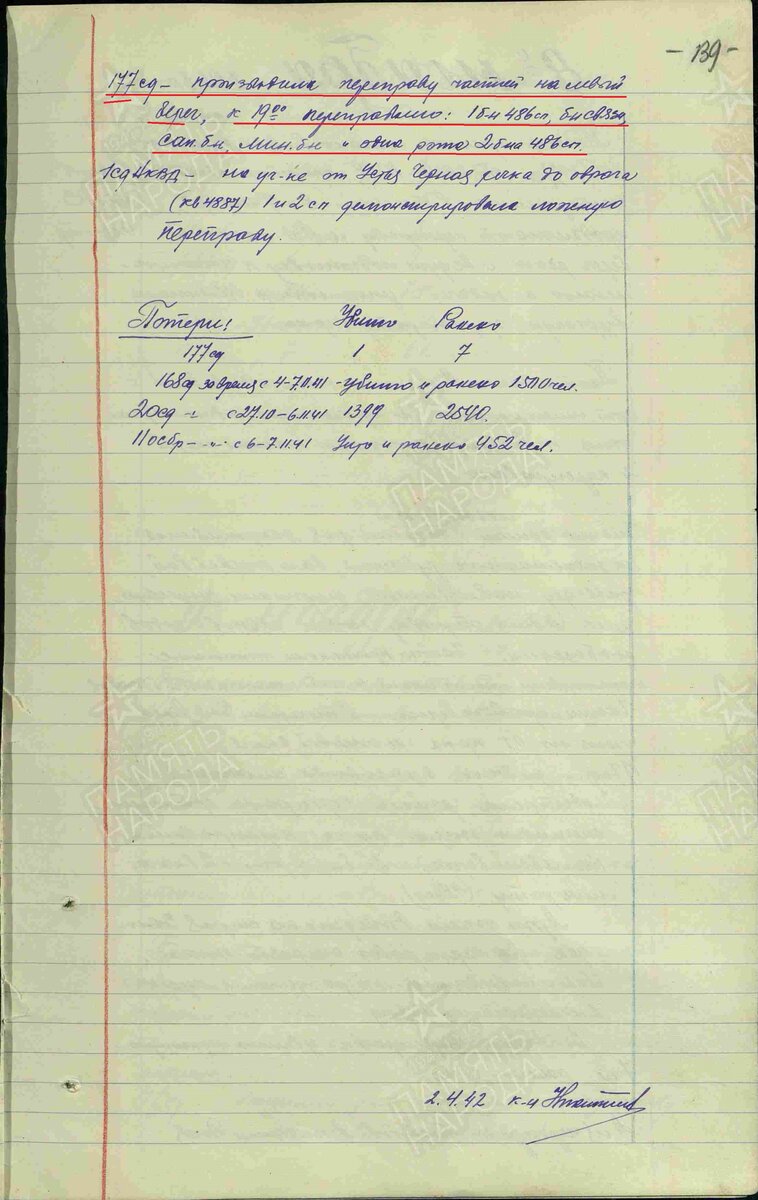 - 139 -
177сд - производила переправу частей на левый
берег, к 19⁰⁰ переправило: 1бн 486сп, бн связи,
сап.бн, мин.бн и одна рота 2бна 486сп.
1сд НКВД - на уч-ке от Устья Черная речка до оврага
(кв 4887) 1 и 2 сп демонстрировала ложную
переправу.
Потери: Убито Ранено
177сд 1 7
168сд за время с 4-7.11.41 - убито и ранено 1500 чел.
20сд -"- с 27.10-6.11.41 1399 2540.
11осбр -"- с 6-7.11.41 Убито и ранено 452 чел.
ПАМЯТЬ
НАРОДА
ПАМЯТЬ
НАРОДА
ПАМЯТЬ
НАРОДА
2.4.42 к-н